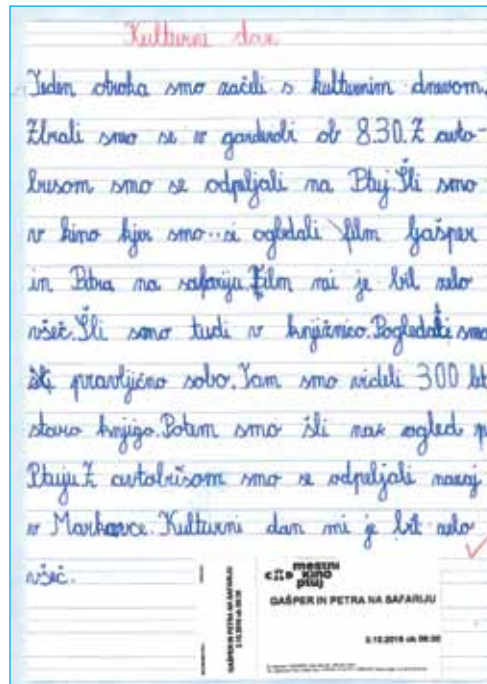 Kulturni dan
Teden otroka smo začeli s kulturnim dnevom.
Zbrali smo se v garderobi ob 8.30. Z avto-
busom smo se odpeljali na Ptuj. Šli smo
v kino kjer smo si ogledali film Gašper
in Petra na safariju. Film mi je bil zelo
všeč. Šli smo tudi v knjižnico. Pogledali smo
si pravljično sobo. Tam smo videli 300 let
staro knjigo. Potem smo šli na ogled
Ptuja. Z avtobusom smo se odpeljali nazaj
v Markovce. Kulturni dan mi je bil zelo
všeč.
mestni
kino
ptuj
GAŠPER IN PETRA NA SAFARIJU
GAŠPER IN PETRA NA SAFARIJU